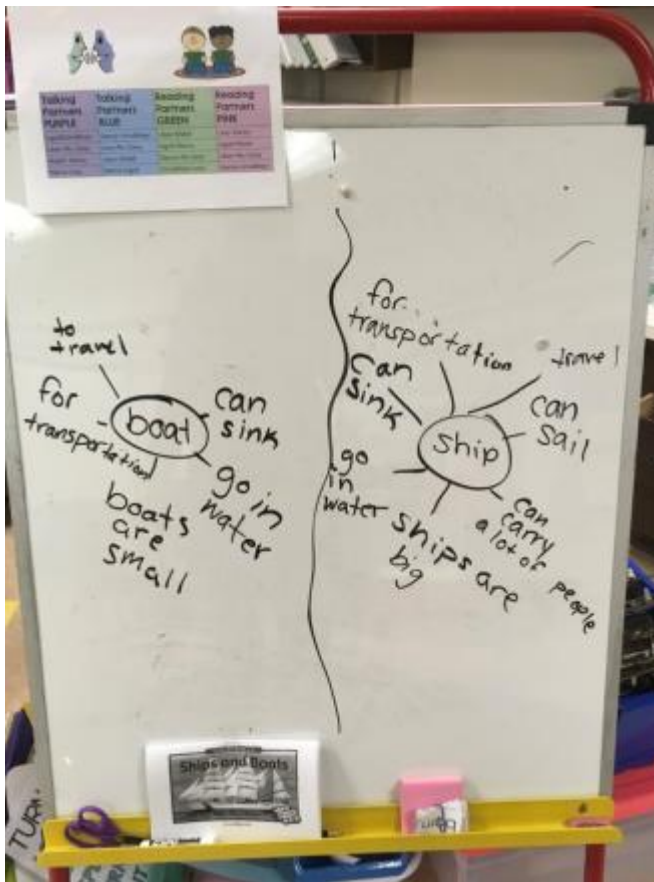 Talking
Partners
PURPLE
Talking
Partners
BLUE
Reading
Partners
GREEN
Reading
Partners
PINK
to
travel
for
transportation
boat
can
sink
go in
water
boats
are
small
for
transportation
travel
can
sink
ship
can
sail
go
in
water
ships are
big
can
carry
a lot of people
Ships and Boats
TURN